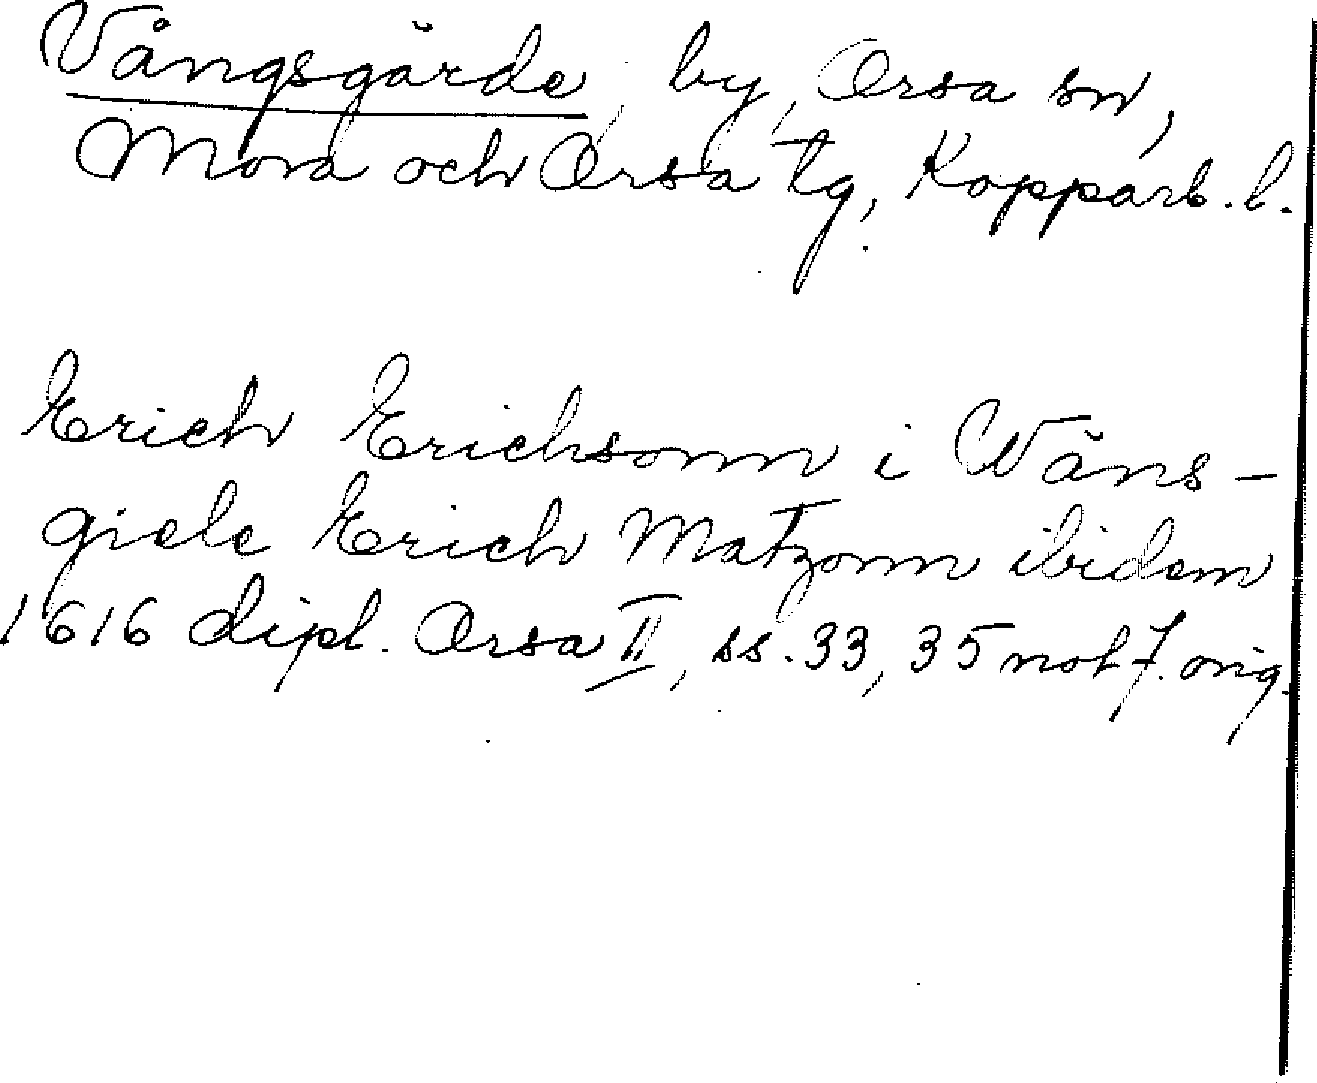 Vångsgärde, by, Orsa sn,
Mora och Orsa tg, Kopparb. l.
Erich Erichsonn i Wäns-
giele Erich Matzonn ibidem
1616 dipl. Orsa II, ss. 33, 35 not 7. orig.